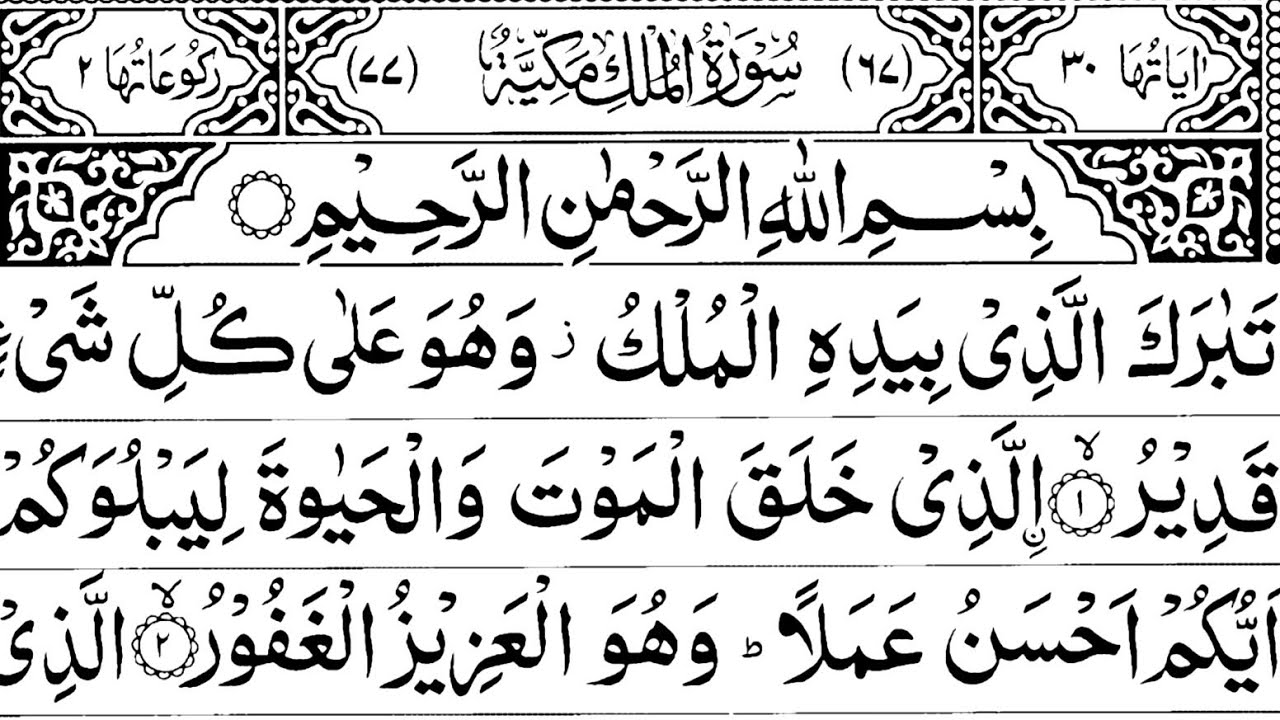 اٰیَاتُهَا ۳۰ (٦٧) سُوْرَةُ الْمُلْكِ مَكِّيَّةٌ (٧٧) رُكُوْعَاتُهَا ۲
بِسْمِ اللّٰهِ الرَّحْمٰنِ الرَّحِيْمِ
تَبٰرَكَ الَّذِیْ بِيَدِهِ الْمُلْكُ ز وَهُوَ عَلٰى كُلِّ شَیْءٍ
قَدِيْرُ ۙ﴿۱﴾ اِۨلَّذِیْ خَلَقَ الْمَوْتَ وَالْحَيٰوةَ لِيَبْلُوَكُمْ
اَيُّكُمْ اَحْسَنُ عَمَلًا ؕ وَهُوَ الْعَزِيْزُ الْغَفُوْرُ ۙ﴿۲﴾ الَّذِیْ